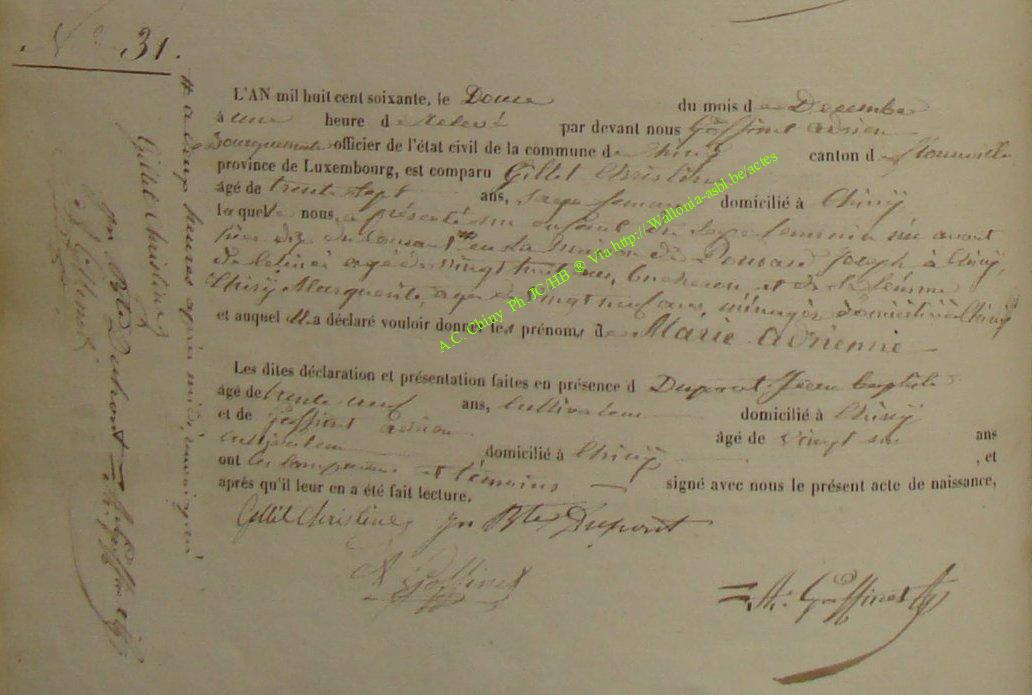 N° 31.
L'AN mil huit cent soixante, le Douze du mois de Décembre
à une heure de relevé par devant nous Goffinet Adrien
Bourguemestre officier de l'état civil de la commune de Chiny canton de Florenville
province de Luxembourg, est comparu Gillet Christine
âgé de trente sept ans, sage femme domicilié à Chiny
laquelle nous a présenté un enfant du sexe féminin né avant
hier dix du courant # en la maison de Ponsard Joseph à Chiny,
âgé de vingt huit ans, bucheron, et de sa femme
Chiny Marguerite, agée de vingt neuf ans, ménagère domiciliés à Chiny
et auquel elle a déclaré vouloir donner les prénoms de Marie Adrienne
Les dites déclaration et présentation faites en présence d Dupont Jean Baptiste
âgé de trente neuf ans, Cultivateur domicilié à Chiny
et de Goffinet Adrien âgé de vingt six ans
Cultivateur domicilié à Chiny, et
ont les comparants et témoins signé avec nous le présent acte de naissance,
après qu'il leur en a été fait lecture.
Gillet Christine Jn Bte Dupont
A Goffinet
A. Goffinet
# à cinq heures après midi,
Gillet Christine
Jn Bte Dupont
A. Goffinet
A.C. Chiny Ph JC/HB ® Via http://Wallonia-asbl.be/actes